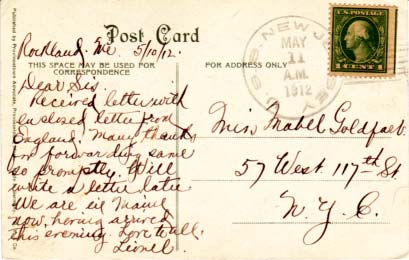 Post Card
Rockland. Me. 5/10/12.
THIS SPACE MAY BE USED FOR
CORRESPONDENCE
FOR ADDRESS ONLY
Dear Sis.
Received letter with
enclosed letter from
England. Many thanks
for forwarding same
so promptly. Will
write a letter later
We are in Maine
now, having arrived
this evening. Love to all.
Lionel.
U.S.S. NEW JERSEY
MAY
11
A.M.
1912
U.S. POSTAGE
1 CENT 1
Miss Mabel Goldfarb
57 West 117th St
N.Y.C.